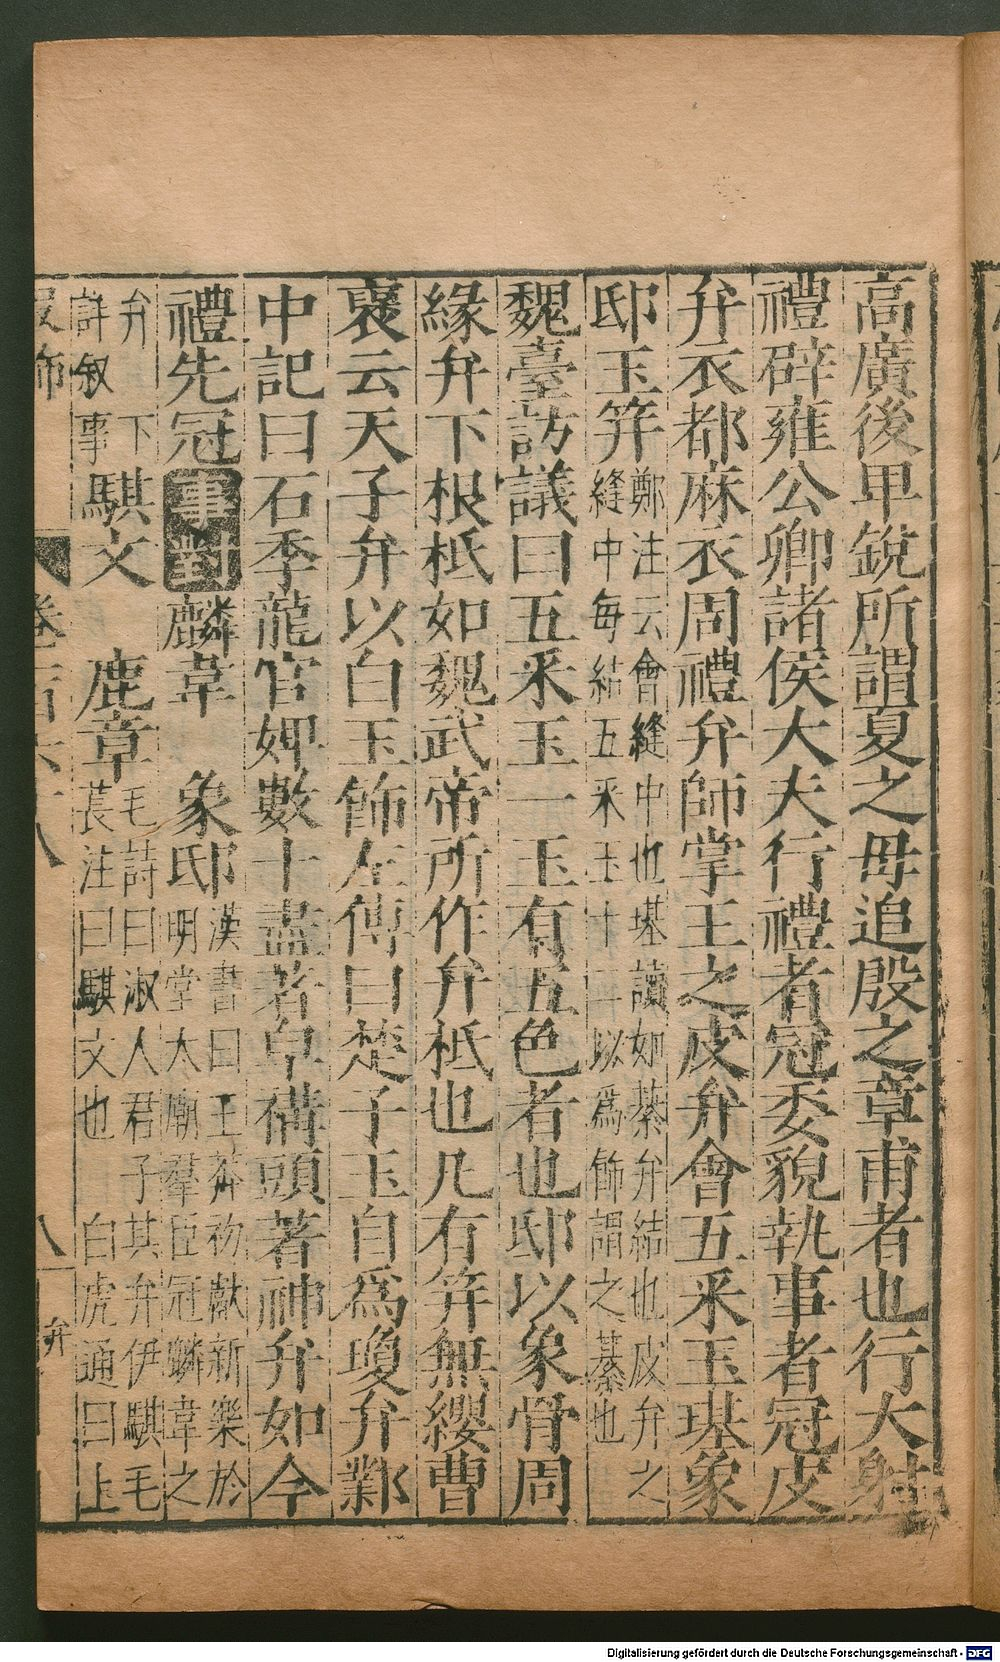 高廣後卑銳所謂夏之毋追殷之章甫者也行大射
禮辟雍公卿諸侯大夫行禮者冠委貌執事者冠皮
弁衣都麻衣周禮弁師掌王之皮弁會五采玉璂象
邸玉笄鄭注云會縫中也璂讀如綦弁結也皮弁之
縫中每結五采玉十二以爲飾謂之綦也
魏臺訪議曰五采玉一玉有五色者也邸以象骨周
緣弁下根柢如魏武帝所作弁柢也凡有笄無纓曹
襃云天子弁以白玉飾左傳曰楚子玉自爲瓊弁鄴
中記曰石季龍宮婢數十盡著皁褠頭著神弁如今
禮先冠事對麟韋 象邸漢書曰王莽初獻新樂於
明堂太廟羣臣冠麟韋之
弁 下
詳叙事騏文 鹿章毛詩曰淑人君子其弁伊騏毛
萇注曰騏文也 白虎通曰上
服飾 卷二百六十八 八 弁
Digitalisierung gefördert durch die Deutsche Forschungsgemeinschaft - DFG